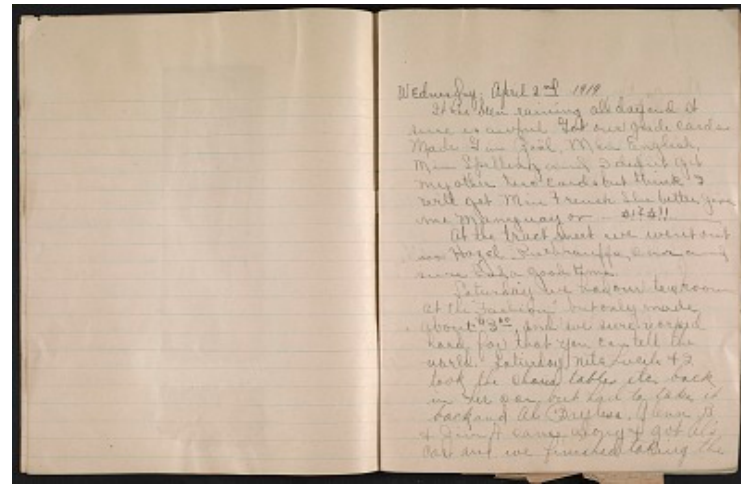 Wednesday, April 2nd 1919
It has been raining all day and it
sure is awful. Got our grade cards
Made G in Zool, M in English,
M in Spelling and I didn't get
my other two cards but think I
will get M in French She better give
me M anyway or
At the track meet we went out
in Hazel car and
sure had a good time.
Saturday we had our tearoom
at the "Fashion" but only made
about $3.00, and we sure worked
hard for that you can tell the
world. Saturday nite & I
took the chairs tables etc. back
in her car but had to take it
back and Al Glenn B
& A came along & got Al's
car and we finished taking the